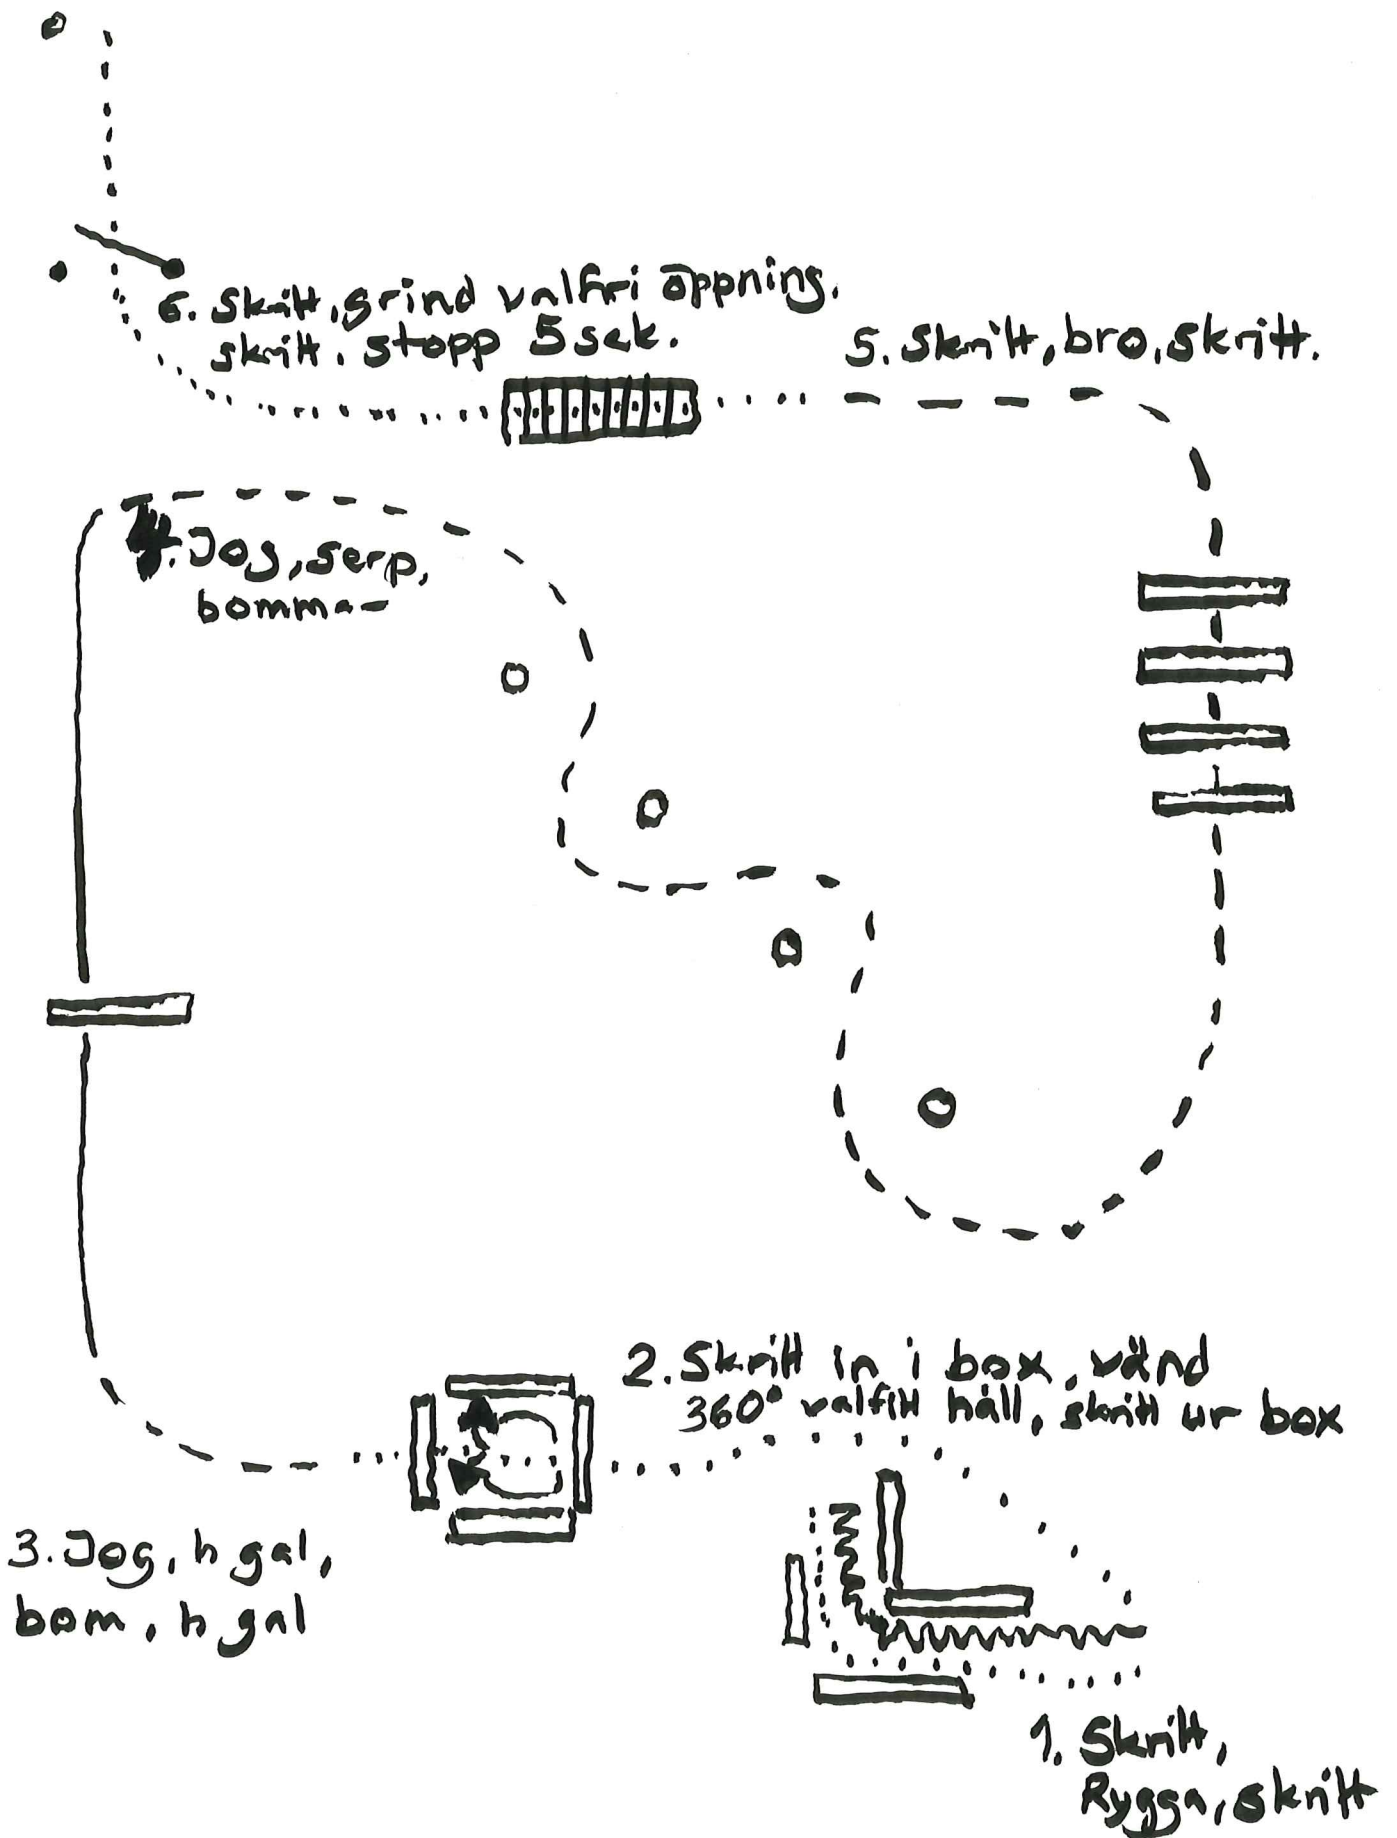 6. Skritt, grind valfri öppning.
skritt. stopp 5 sek.
5. Skritt, bro, skritt.
4. Jog, serp,
bommar
2. Skritt in i box, vänd
360° valfritt håll, skritt ur box
3. Jog, h gal,
bom, h gal
1. Skritt,
Rygga, skritt